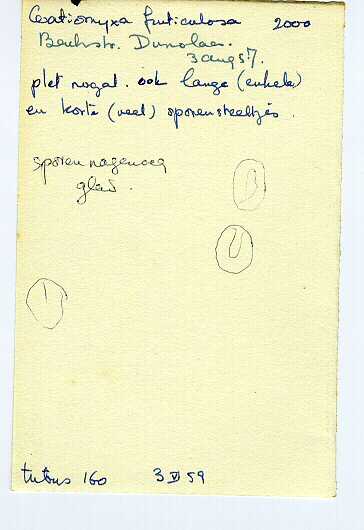 Ceratiomyxa fruticulosa 2000
3 aug 57.
plet nogal. ook lange (enkele)
en korte (veel) sporensteeltjes.
sporen nagenoeg
glad.
tubus 160 3 VI 59